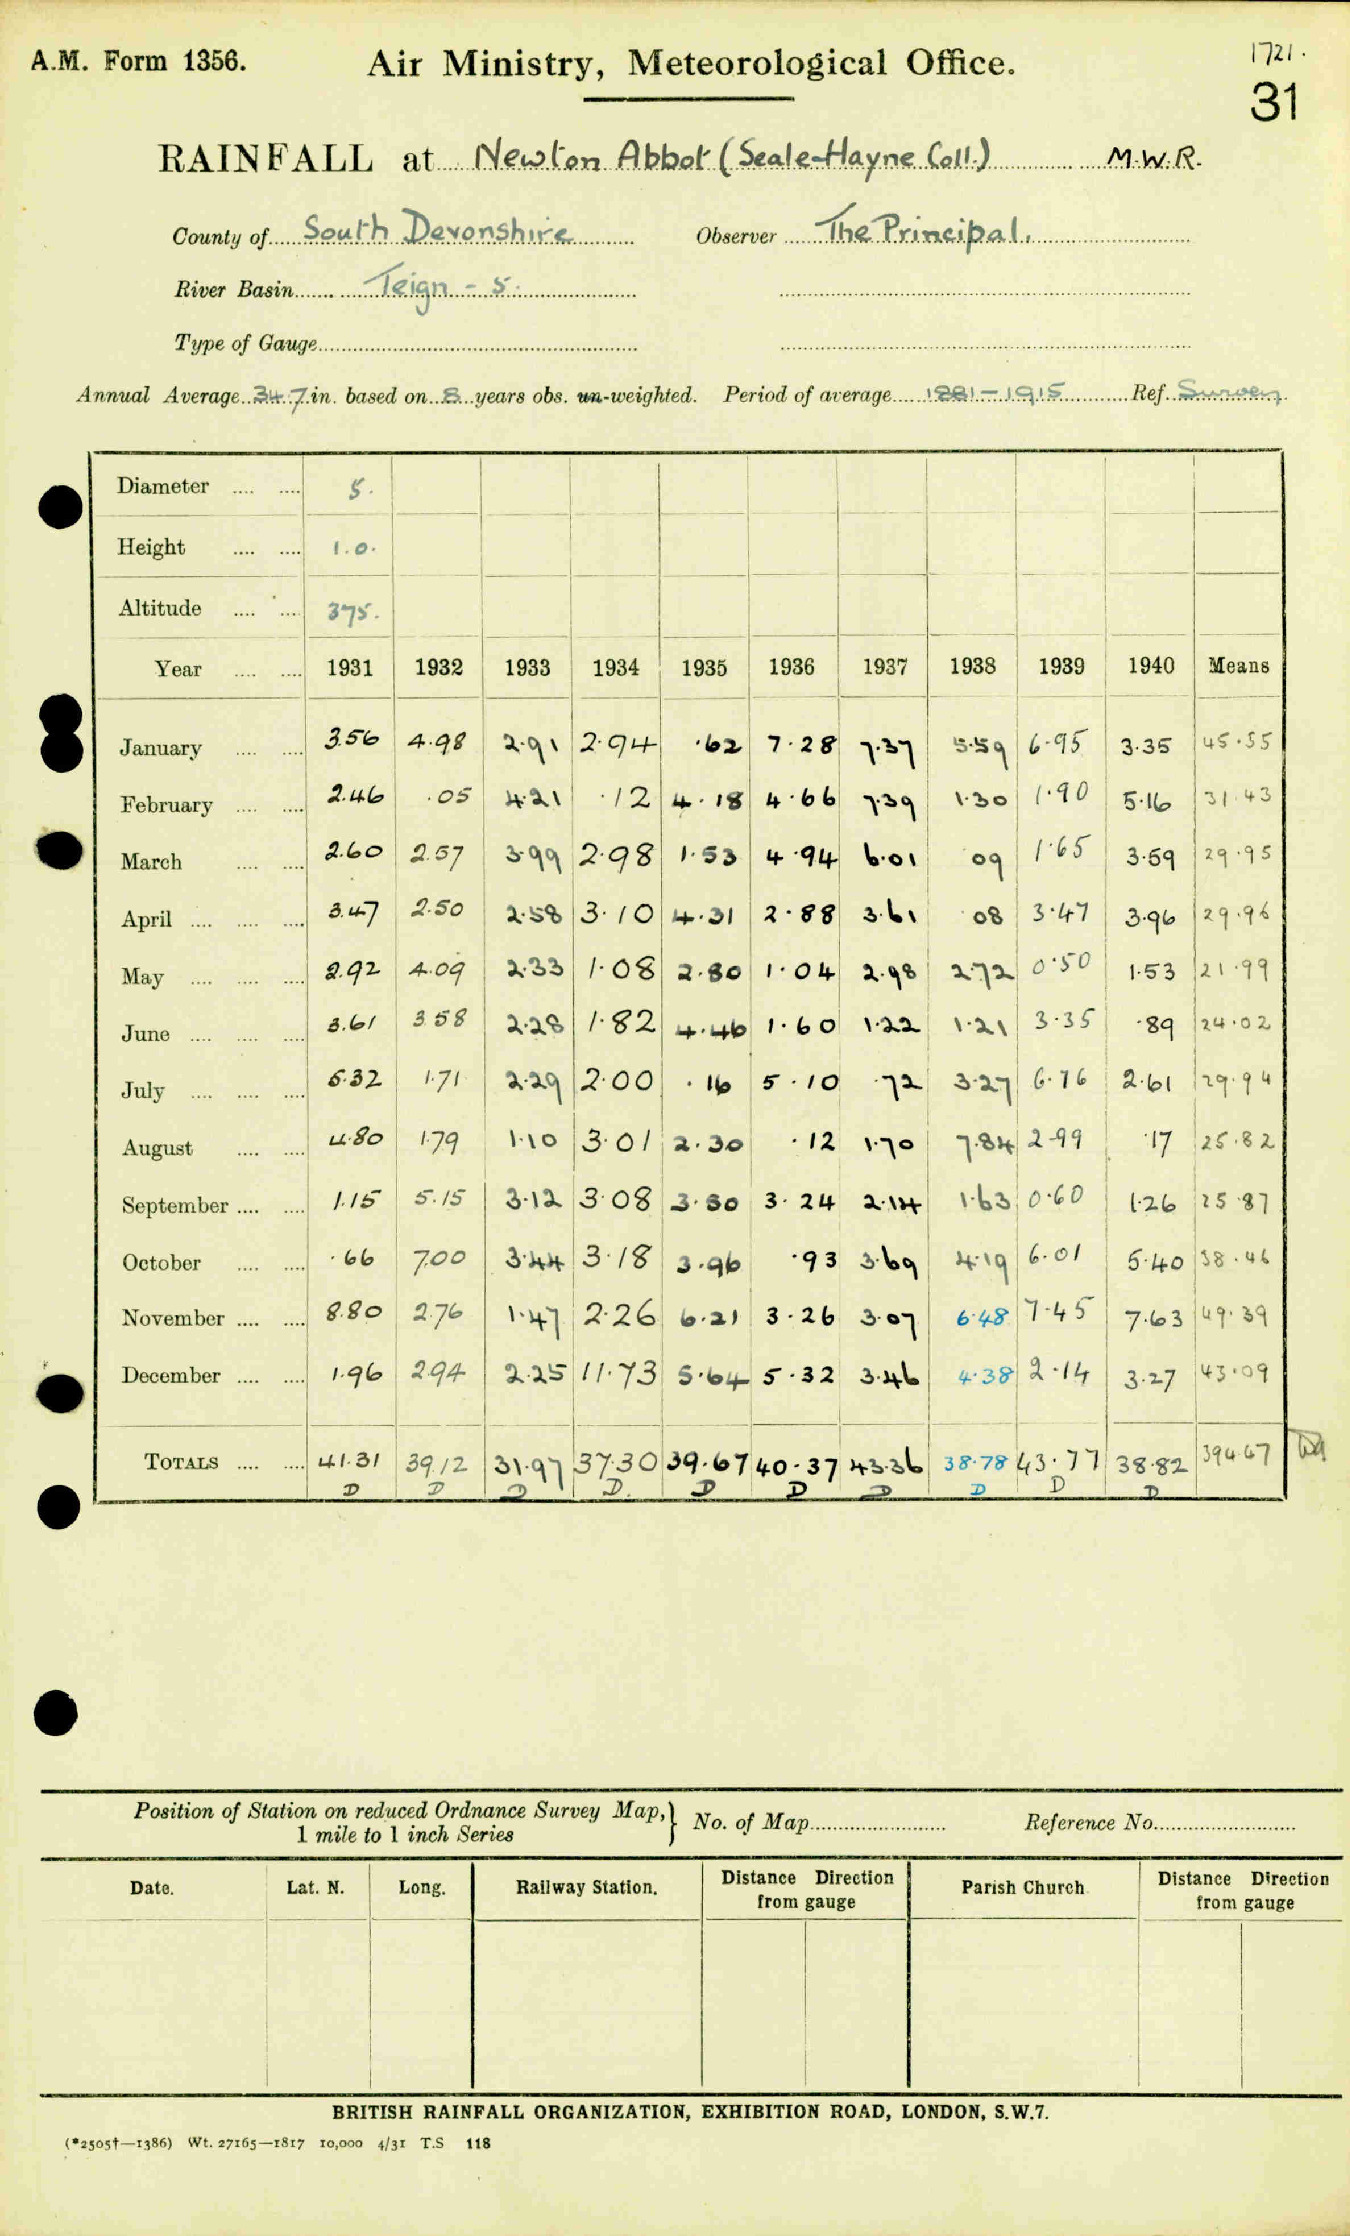 A.M. Form 1356.
Air Ministry, Meteorological Office.
1721.
31
RAINFALL at Newton Abbot (Seale-Hayne Coll.) M.W.R.
County of South Devonshire Observer The Principal.
River Basin Teign - 5.
Type of Gauge
Annual Average 34.7 in. based on 8 years obs. un-weighted. Period of average 1881-1915 Ref. Survey
Diameter .... .... 5.
Height .... .... 1.0.
Altitude .... .... 375.
Year .... .... 1931 1932 1933 1934 1935 1936 1937 1938 1939 1940 Means
January .... .... 3.56 4.98 2.91 2.94 .62 7.28 7.37 5.59 6.95 3.35 45.55
February .... .... 2.46 .05 4.21 .12 4.18 4.66 7.39 1.30 1.90 5.16 31.43
March .... .... 2.60 2.57 3.99 2.98 1.53 4.94 6.01 09 1.65 3.59 29.95
April .... .... .... 3.47 2.50 2.58 3.10 4.31 2.88 3.61 08 3.47 3.96 29.96
May .... .... .... 2.92 4.09 2.33 1.08 2.80 1.04 2.98 2.72 0.50 1.53 21.99
June .... .... .... 3.61 3.58 2.28 1.82 4.46 1.60 1.22 1.21 3.35 .89 24.02
July .... .... .... 5.32 1.71 2.29 2.00 .16 5.10 .72 3.27 6.76 2.61 29.94
August .... .... 4.80 1.79 1.10 3.01 2.30 .12 1.70 7.84 2.99 .17 25.82
September .... .... 1.15 5.15 3.12 3.08 3.50 3.24 2.14 1.63 0.60 1.26 25.87
October .... .... .66 7.00 3.44 3.18 3.96 .93 3.69 4.19 6.01 5.40 38.46
November .... .... 8.80 2.76 1.47 2.26 6.21 3.26 3.07 6.48 7.45 7.63 49.39
December .... .... 1.96 2.94 2.25 11.73 5.64 5.32 3.46 4.38 2.14 3.27 43.09
TOTALS .... .... 41.31 39.12 31.97 37.30 39.67 40.37 43.36 38.78 43.77 38.82 394.67
D D D D. D D D D D D
Position of Station on reduced Ordnance Survey Map,} No. of Map Reference No.
1 mile to 1 inch Series
Date. Lat. N. Long. Railway Station. Distance Direction from gauge Parish Church Distance Direction from gauge
BRITISH RAINFALL ORGANIZATION, EXHIBITION ROAD, LONDON, S.W.7.
(*2505†—1386) Wt. 27165—1817 10,000 4/31 T.S 118